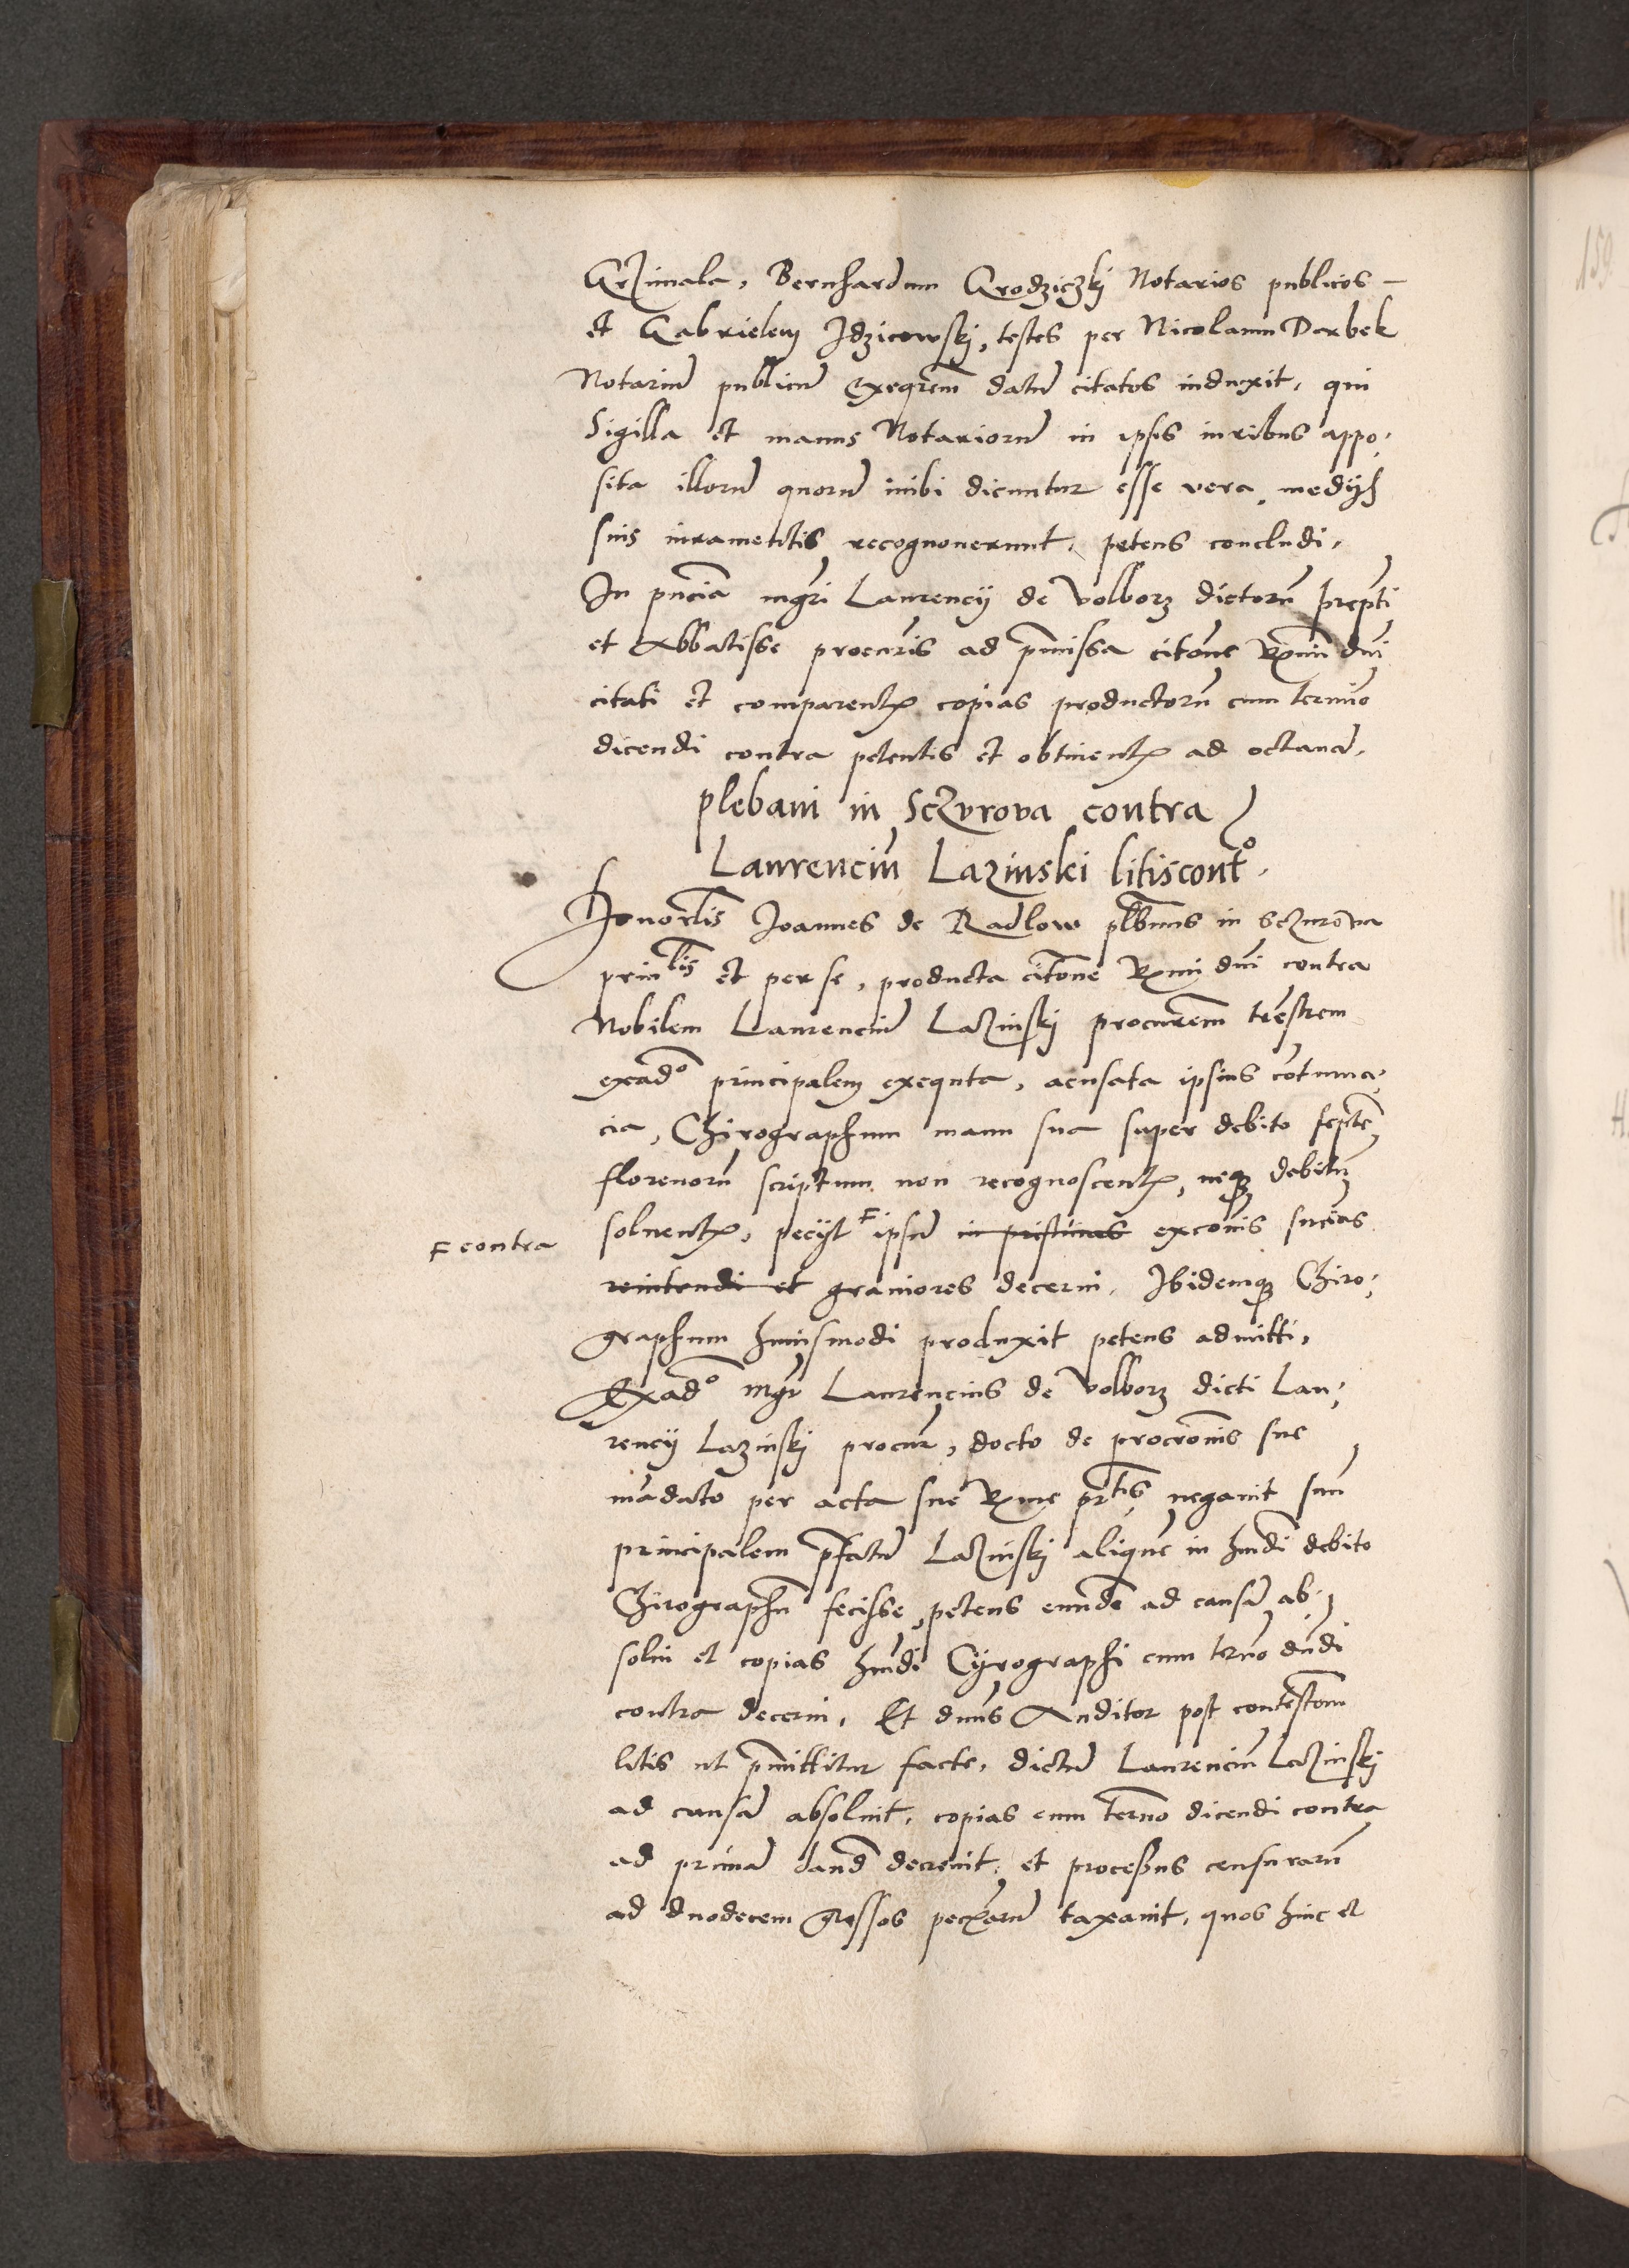 Grzimala, Bernhardum Grodziczki Notarios publicos –
et Gabrielem Idzicowski, testes per Nicolaum Dorbek
Notariũ publicũ exeqrem̃ datũ citatos induxit, qui
Sigilla et manus Notariorũ in ipsis iuribus appo,
sita illorũ quorũ inibi dicuntur esse vera, medijs
suis iuramentis recognouerunt, petens concludi,
In pñcia mgri Laurencij de Volborz dictorũ prepti
et Abbatisse procuris ad pmissa citõne Rmi dñi
citati et comparentis copias productorũ cum termĩo
dicendi contra petentis et obtinentis ad octauã.
plebani in Sczurova contra
Laurenciũ Lazinski litiscontº.
Honorlis Joannes de Radlow plbnus in Sczurowa
prinlis et per se, producta citõne Rmi dñi contra
Nobilem Laurenciũ Lazinski procurem̃ trẽstrem
exadº principalem exequta, acusata ipsius cõtuma,
cia, Chirographum manu sua super debito septẽ
florenorũ scriptum non recognoscentis, neqȝ debitũ
soluentis, pecijt F ipsũ in pristinas excõnis sñcias
F contra
reintrudi et grauiores decerni, Ibidemqȝ Chiro,
graphum huiusmodi produxit petens admitti,
Exadº mgr Laurencius de Volborz dicti Lau,
rencij Lazinski procur, docto de procrõnis sue
mãdato per acta sue Rme prtis negauit suũ
principalem pfatũ Lazinski aliquẽ in hmdi debito
Chirographũ fecisse, petens eundẽ ad causã ab,
solui et copias hmdi Cyrographi cum termo dndi
contra decerni, Et dnũs Auditor post contestõem
litis ut pmittitur facte, dictũ Laurenciũ Lazinski
ad causã absoluit, copias cum termo dicendi contra
ad primã dand decreuit, et processus censurarũ
ad duodecem grossos taxauit, quos hinc et